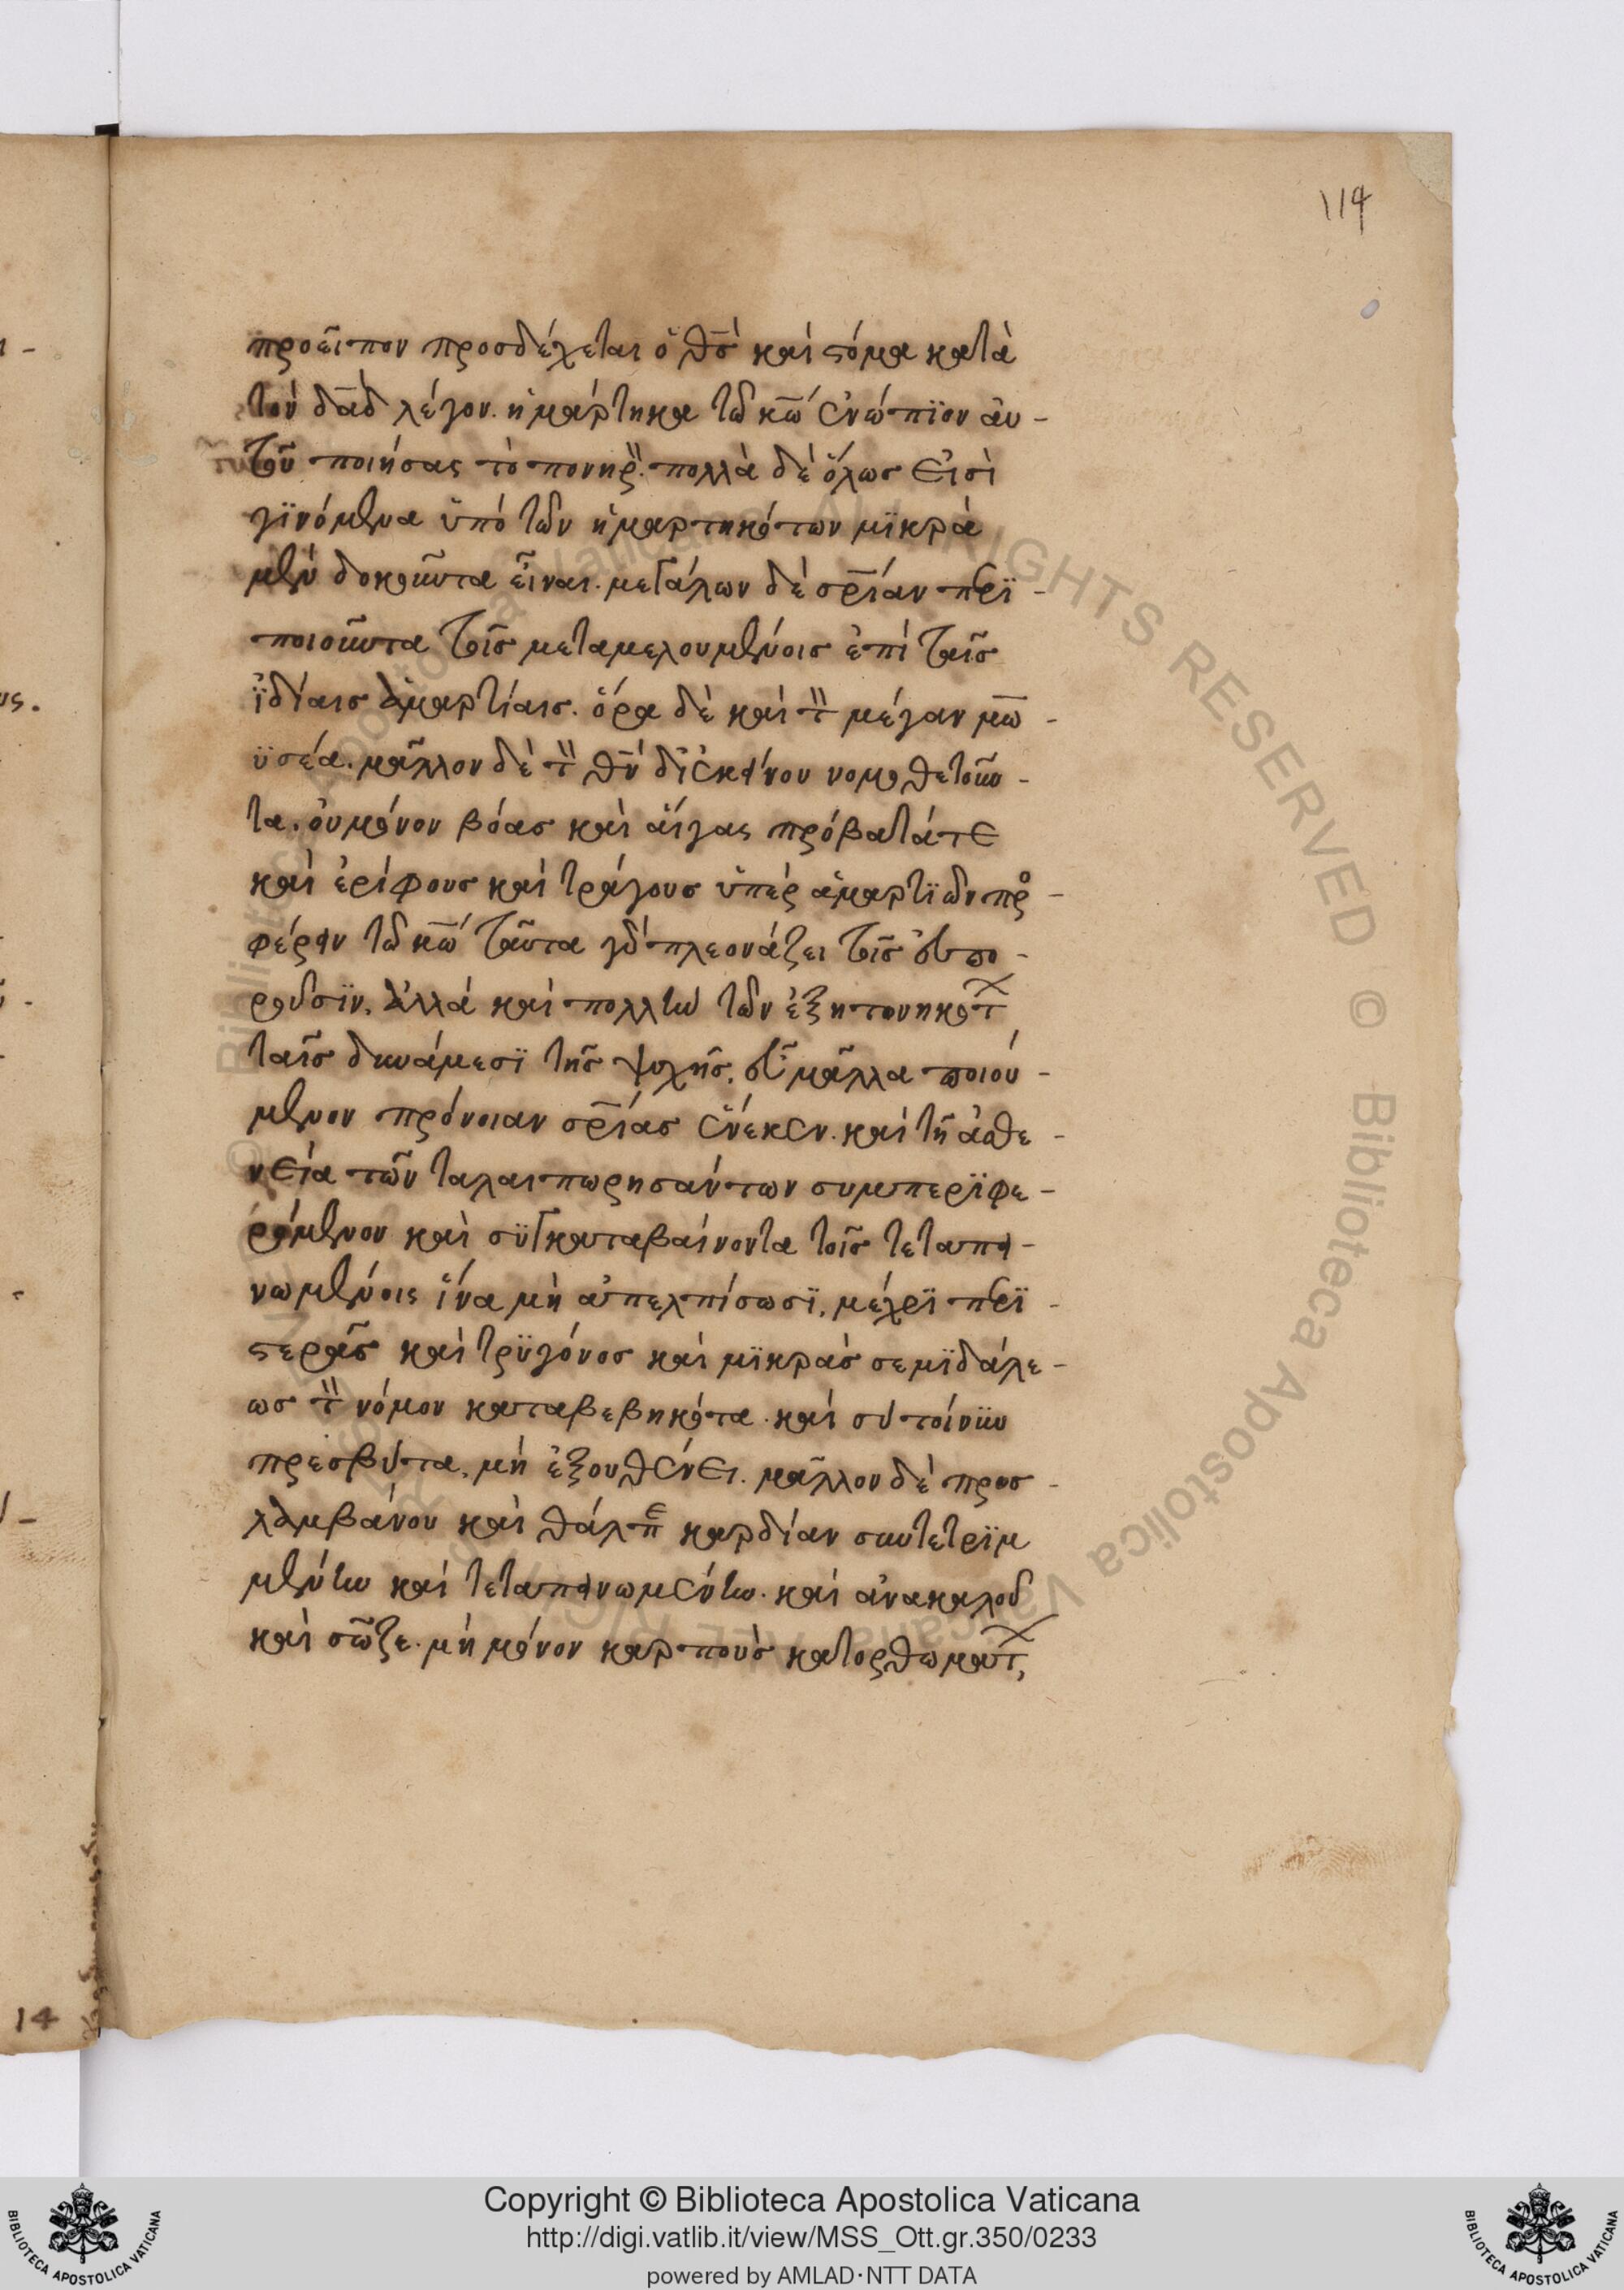 119
προεῖπον προσδέχεται ὁ θς καὶ στόμα κατὰ
τὸν δαδ λέγον. ἡμάρτηκα τῶ κω ἐνώπϊον αὐ-
τοῦ ποιήσας τὸ πονηρ. πολλὰ δὲ ὅλως εἰσὶ
γϊνόμενα ὑπὸ τῶν ἡμαρτηκότων μϊκρὰ
μὲν δοκοῦντα εἶναι. μεγάλων δὲ σρίαν περϊ-
ποιοῦντα τοῖς μεταμελουμένοις ἐπὶ ταῖς
ἰδίαις ἁμαρτίαις. ὅρα δὲ καὶ τὸν μέγαν μω-
ϋσέα. μᾶλλον δὲ τὸν θν δι ἐκείνου νομοθετοῦν-
τα. οὐ μόνον βόας καὶ αἴγας πρόβατά τε
καὶ ἐρίφους καὶ τράγους ὑπὲρ ἁμαρτϊῶν προσ-
φέρειν τῶ κω ταῦτα γὰρ πλεονάζει τοῖς εὐπο-
ροῦσϊν. ἀλλὰ καὶ πολλὴν τῶν ἐξητονηκότων
ταῖς δυνάμεσϊ τῆς ψυχῆς. εὖ μάλλα ποιού-
μενον πρόνοιαν σρίας ἕνεκεν. καὶ τῆ ἀσθε-
νεία τῶν ταλαιπωρησάντων συμπερϊφε-
ρόμενον καὶ σϋγκαταβαίνοντα τοῖς τεταπει-
νωμένοις ἵνα μὴ ἀπελπίσωσϊ, μέχρϊ περϊ-
στερᾶς καὶ τρϋγόνος καὶ μϊκρὰς σεμϊδάλε-
ως τὸν νόμον καταβεβηκότα. καὶ σὺ τοίνυν
πρεσβύτα, μὴ ἐξουθένει. μᾶλλον δὲ προσ-
λαμβάνου καὶ θάλπε καρδίαν συντετρϊμ
μένην καὶ τεταπεινωμένην. καὶ ἀνακαλοῦ
καὶ σῶζε. μὴ μόνον καρποὺς κατορθωμάτων,
14
Copyright © Biblioteca Apostolica Vaticana
http://digi.vatlib.it/view/MSS_Ott.gr.350/0233
powered by AMLAD·NTT DATA